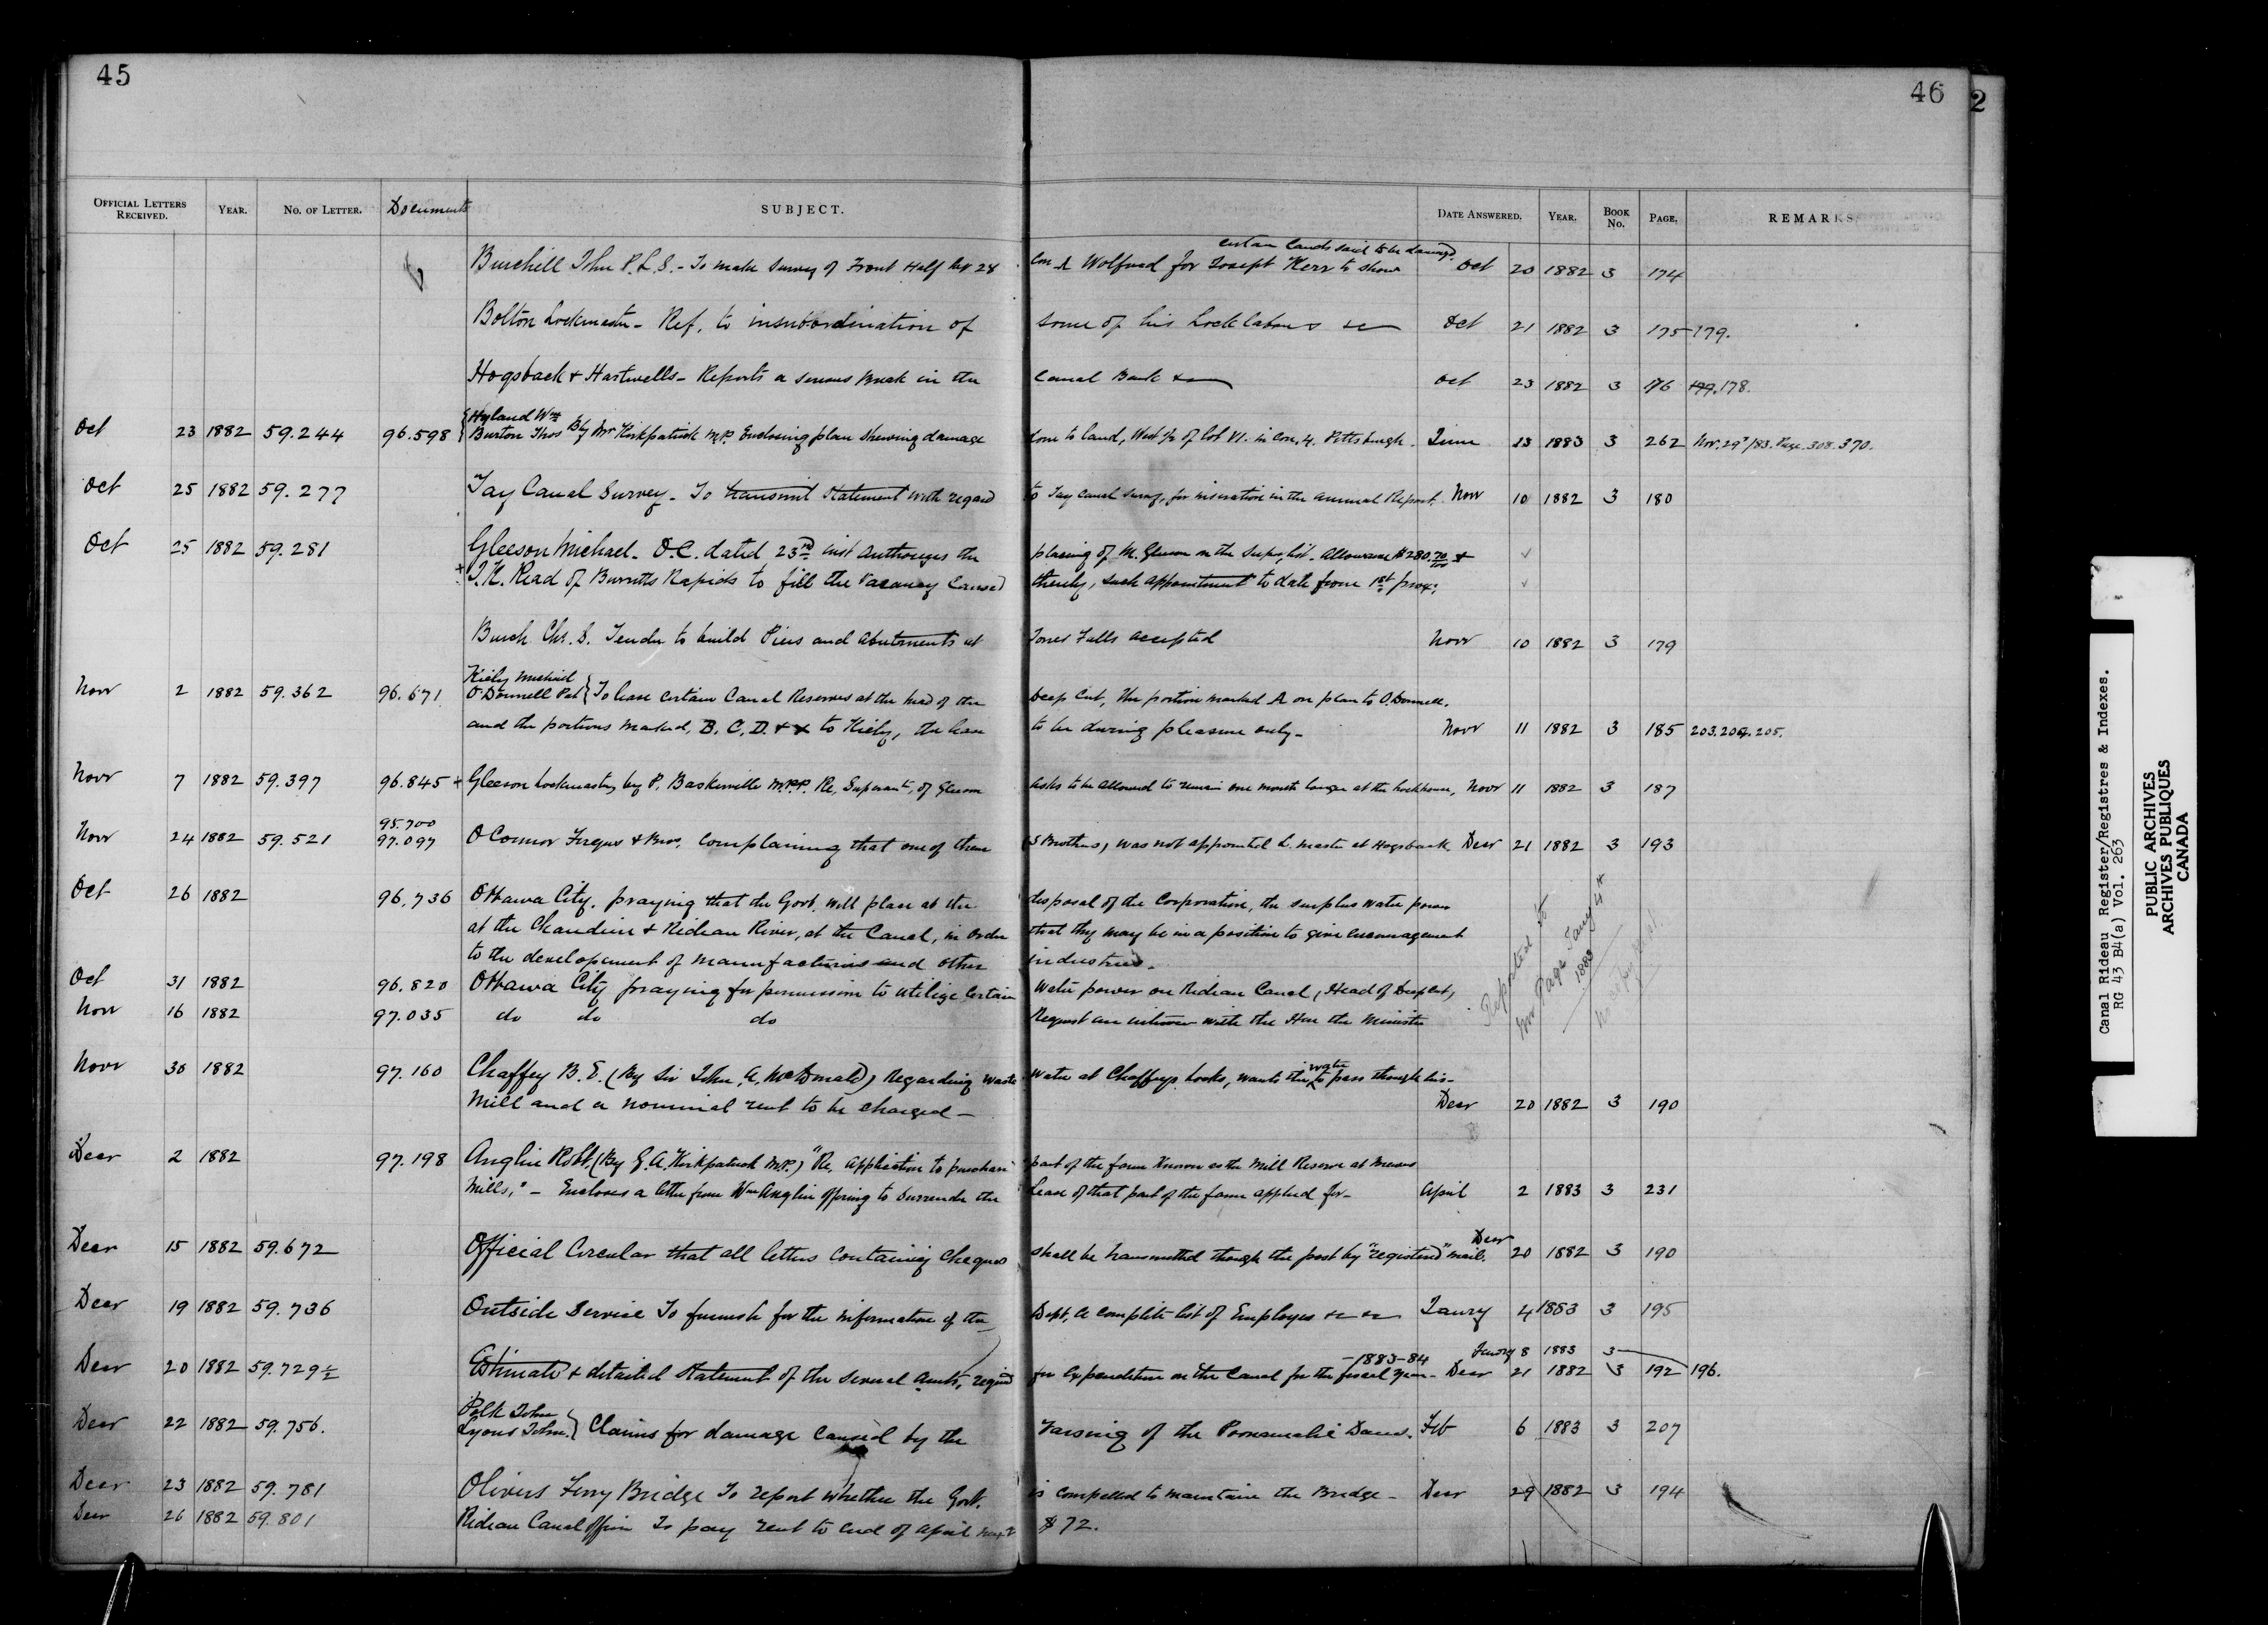 45
46
2
OFFICIAL LETTERS RECEIVED. YEAR. NO. OF LETTER. Documents SUBJECT. DATE ANSWERED. YEAR. BOOK No. PAGE. REMARKS
certain lands said to be damaged
Burchill John P.L.S. - To make survey of Front Half Lot 28 Con A Wolford for Joseph Kerr to show Oct 20 1882 3 174
Bolton Lockmaster - Ref. to insubordination of some of his Lock labours &c Oct 21 1882 3 175 179.
Hogsback & Hartwells - Reports a serious break in the Canal Bank &c Oct 23 1882 3 176 177. 178.
Hyland Wm
Oct 23 1882 59.244 96.598 Burton Thos By Mr Kirkpatrick M.P. Enclosing plan shewing damage done to land, West ½ of lot VI. in Con. 4. Pittsburgh. June 13 1883 3 262 Nov. 29/83. Page 308. 370.
Oct 25 1882 59.277 Tay Canal Survey - To transmit statement with regard to Tay Canal Survey, for insertion in the annual Report. Novr 10 1882 3 180
Oct 25 1882 59.281 Gleeson Michael. O.C. dated 23rd inst authorizes the placing of M. Gleeson on the Super. list. Allowance $280.70/100 &
+ J.K. Read of Burritts Rapids to fill the vacancy caused thereby, such appointment to date from 1st prox:
Burch Chr. S. Tender to build Piers and abutments at Jones Falls accepted Novr 10 1882 3 179
Kiely Michael
Novr 2 1882 59.362 96.671 O'Donnell Pat } To lease certain Canal Reserves at the head of the Deep Cut, the portion marked A on plan to O'Donnell.
and the portions marked, B. C. D. & X to Kiely, the lease to be during pleasure only - Novr 11 1882 3 185 203. 204. 205.
Novr 7 1882 59.397 96.845 + Gleeson Lockmaster, by P. Baskerville M.P.P. Re, Superant, of Gleeson Asks to be allowed to remain one month longer at the lockhouse, Novr 11 1882 3 187
95.700
Novr 24 1882 59.521 97.097 O'Connor Fergus & Bros, Complaining that one of them (5 Brothers) was not appointed L. master at Hogsback Decr 21 1882 3 193
Oct 26 1882 96.736 Ottawa City. praying that the Govt. will place at the disposal of the Corporation, the surplus water power
at the Chaudiere & Rideau River, at the Canal, in order that they may be in a position to give encouragement
to the development of manufactories and other industries.
Oct 31 1882 96.820 Ottawa City praying for permission to utilize certain water power on Rideau Canal (Head of Deep Cut)
Novr 16 1882 97.035 do do do Request an interview with the Hon the Minister
Reported to
Mr Page Jany 4th
1883
Novr 30 1882 97.160 Chaffey B. E. (By Sir John A. McDonald) Regarding waste water at Chaffeys Locks, wants the water to pass through his -
Mill and a nominal rent to be charged - Decr 20 1882 3 190
Decr 2 1882 97.198 Anglin Robt. (By G.A. Kirkpatrick M.P.) "Re, application to purchase part of the farm known as the Mill Reserve at
Mills," - Encloses a letter from Wm Anglin offering to surrender the lease of that part of the farm applied for - April 2 1883 3 231
Decr 15 1882 59.672 Official Circular that all letters containing cheques shall be transmitted through the post by "registered" mail. Decr 20 1882 3 190
Decr 19 1882 59.736 Outside Service To furnish for the information of the Dept, a complete list of Employes &c &c Janry 4 1883 3 195
-1883-84 Janry 8 1883 3
Decr 20 1882 59.729½ Estimate & detailed statement of the several amts, required for Expenditure on the Canal for the fiscal year - Decr 21 1882 3 192 196.
Polk John
Decr 22 1882 59.756. Lyons John. } Claims for damage caused by the raising of the Poonamalie Dam. Feb 6 1883 3 207
Decr 23 1882 59.781 Olivers Ferry Bridge To report whether the Govt. is compelled to maintain the Bridge - Decr 29 1882 3 194
Decr 26 1882 59.801 Rideau Canal Office To pay rent to end of April next $72.
Canal Rideau Register/Registres & Indexes.
RG 43 B4(a) Vol. 263
PUBLIC ARCHIVES
ARCHIVES PUBLIQUES
CANADA